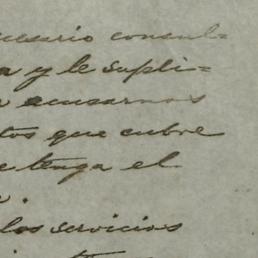 cesario consul=
a y le supli=
a acusarnos
tos que cubre
e tenga el
los servicios